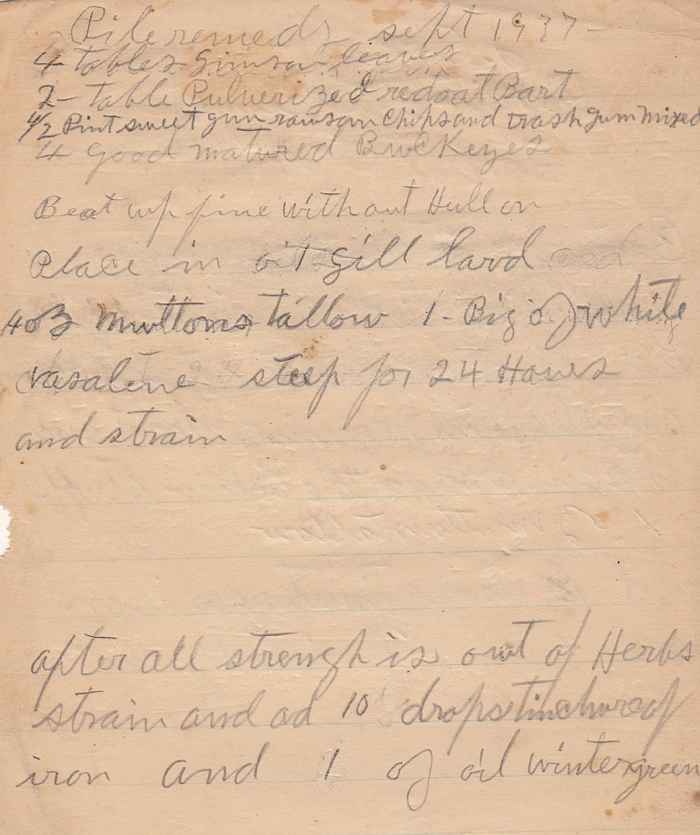 Pile remedy sept 1937-
4 tables Simson leaves
2- table Pulverized redoat Bart
1/2 Pint sweet gum rawsom chips and trash gum mixed
4 good matured Buckeyes
Beat up fine without Hull on
Place in 1 gill lard
4 oz Muttons tallow 1- Big of white
vasaline steep for 24 Hours
and strain
after all strengh is out of Herbs
strain and ad 10 drops tincture of
iron and 1 of oil wintergreen